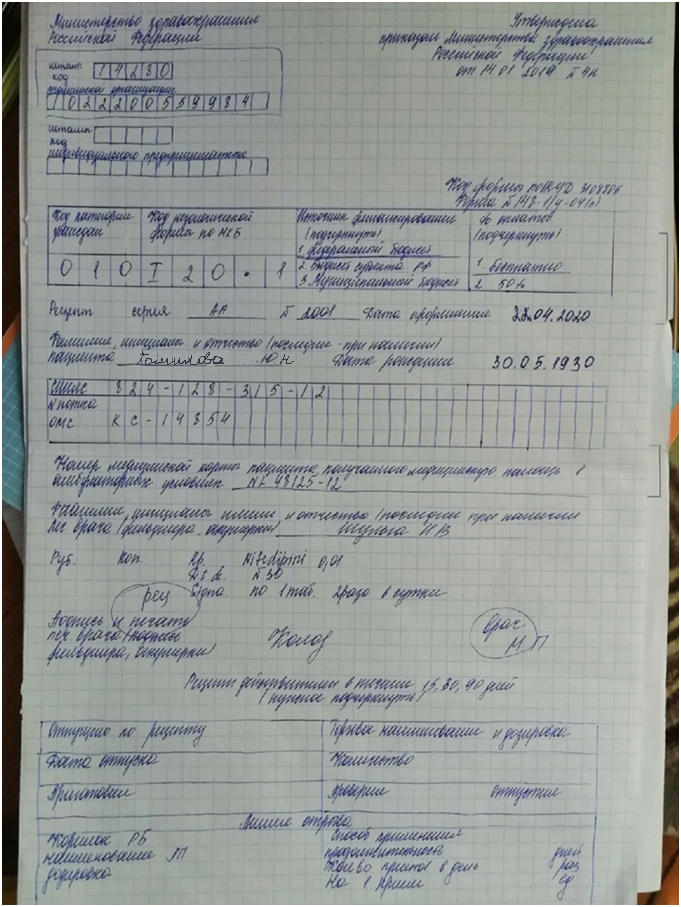 Министерство здравоохранения
Российской Федерации
Утверждена
приказом Министерства здравоохранения
Российской Федерации
от 14 01 2019 № 4н
штамп
код 14230
медицинской организации
1022200559984
штамп
код
индивидуального предпринимателя
Код формы по ОКУД 3108805
Форма № 148-1/у-04(л)
Код категории граждан
Код нозологической формы по МКБ
Источник финансирования (подчеркнуть)
1. Федеральный бюджет
2. Бюджет субъекта РФ
3. Муниципальный бюджет
% оплаты (подчеркнуть)
1. бесплатно
2. 50%
010 I20.1
Рецепт серия АА № 2001 Дата оформления 22.04.2020
Фамилия, инициалы и отчество (последнее - при наличии)
пациента Ю Н Дата рождения 30.05.1930
СНИЛС 824-128-315-12
N полиса
ОМС КС-14354
Номер медицинской карты пациента, получающего медицинскую помощь в
амбулаторных условиях № 48125-12
Фамилия, инициалы имени и отчество (последнее при наличии)
леч врача (фельдшера, акушерки) Шульга Н В
Руб. Коп. Rp. Nifedipini 0,01
D.t.d. N 30
Signa. по 1 таб. 2 раза в сутки
рец
Подпись и печать
леч врача (подпись
фельдшера, акушерки)
врач
М П
Рецепт действителен в течении 15, 30, 90 дней
(нужное подчеркнуть)
Отпущено по рецепту
Торговое наименование и дозировка
Дата отпуска
Количество
Приготовил
Проверил отпустил
Линия отрыва
Корешок РБ
наименование ЛП
дозировка
Способ применения
продолжительность дней
Кол-во приемов в день раз
На 1 прием ед